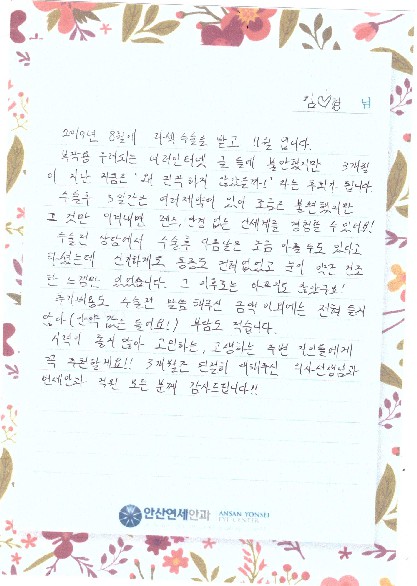 김♡형 님
2019년 8월에 라섹수술을 받고 11월 입니다.
부작용 우려되는 너러인터넷 글들에 불안했지만 3개월
이 지난 지금은 '왜 진작 하지 않았을까~!' 라는 후회가 됩니다.
수술후 5일간은 여러제약이 있어 조금은 불편했지만
그 것만 이겨내면 렌즈, 안경 없는 신세계를 경험할 수 있어요!
수술전 상담에서 수술후 다음날은 조금 아플수도 있다고
하셨는데 신기하게도 통증도 전혀없었고 눈이 약간 건조
한 느낌만 있었습니다. 그 이후로는 아프지도 않았구요!
추가비용도 수술전 말씀해주신 금액 이외에는 전혀 들지
않아 (안약 값은 들어요!) 부담도 적습니다.
시력이 좋지 않아 고민하는, 고생하는 주변 지인들에게
꼭 추천할게요!! 3개월간 친절히 대해주신 의사선생님과
연세안과 직원 모든 분께 감사드립니다!!
안산연세안과 ANSAN YONSEI
EYE CENTER